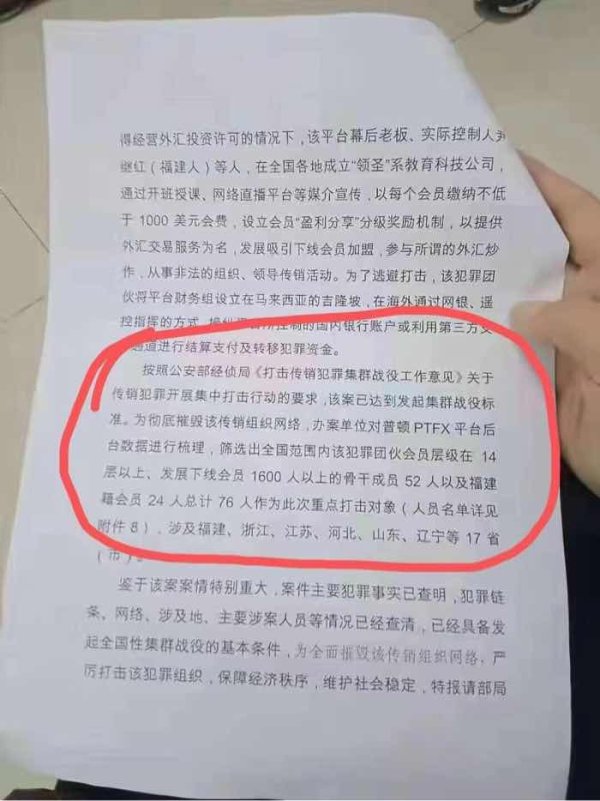 得经营外汇投资许可的情况下，该平台幕后老板、实际控制人
继红（福建人）等人，在全国各地成立“领圣”系教育科技公司，
通过开班授课、网络直播平台等媒介宣传，以每个会员缴纳不低
于 1000 美元会费，设立会员“盈利分享”分级奖励机制，以提供
外汇交易服务为名，发展吸引下线会员加盟，参与所谓的外汇炒
作，从事非法的组织、领导传销活动。为了逃避打击，该犯罪团
伙将平台财务组设立在马来西亚的吉隆坡，在海外通过网银、遥
控指挥的方式，控制的国内银行账户或利用第三方支
通道进行结算支付及转移犯罪资金。
按照公安部经侦局《打击传销犯罪集群战役工作意见》关于
传销犯罪开展集中打击行动的要求，该案已达到发起集群战役标
准。为彻底摧毁该传销组织网络，办案单位对普顿 PTFX 平台后
台数据进行梳理，筛选出全国范围内该犯罪团伙会员层级在 14
层以上、发展下线会员 1600 人以上的骨干成员 52 人以及福建
籍会员 24 人总计 76 人作为此次重点打击对象（人员名单详见
附件 8），涉及福建、浙江、江苏、河北、山东、辽宁等 17 省
（市）。
鉴于该案案情特别重大，案件主要犯罪事实已查明，犯罪链
条、网络、涉及地、主要涉案人员等情况已经查清，已经具备发
起全国性集群战役的基本条件，为全面摧毁该传销组织网络，严
厉打击该犯罪组织，保障经济秩序，维护社会稳定，特报请部局